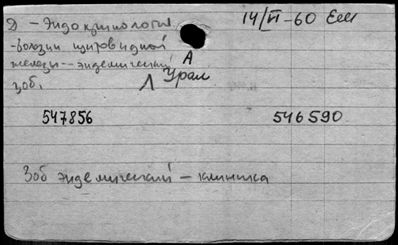 Д – Эндокринология 14/VI–60
– Болезни щитовидной А
железы – эндемический Урал
зоб. Л
547856 546590
Зоб эндемический – клиника